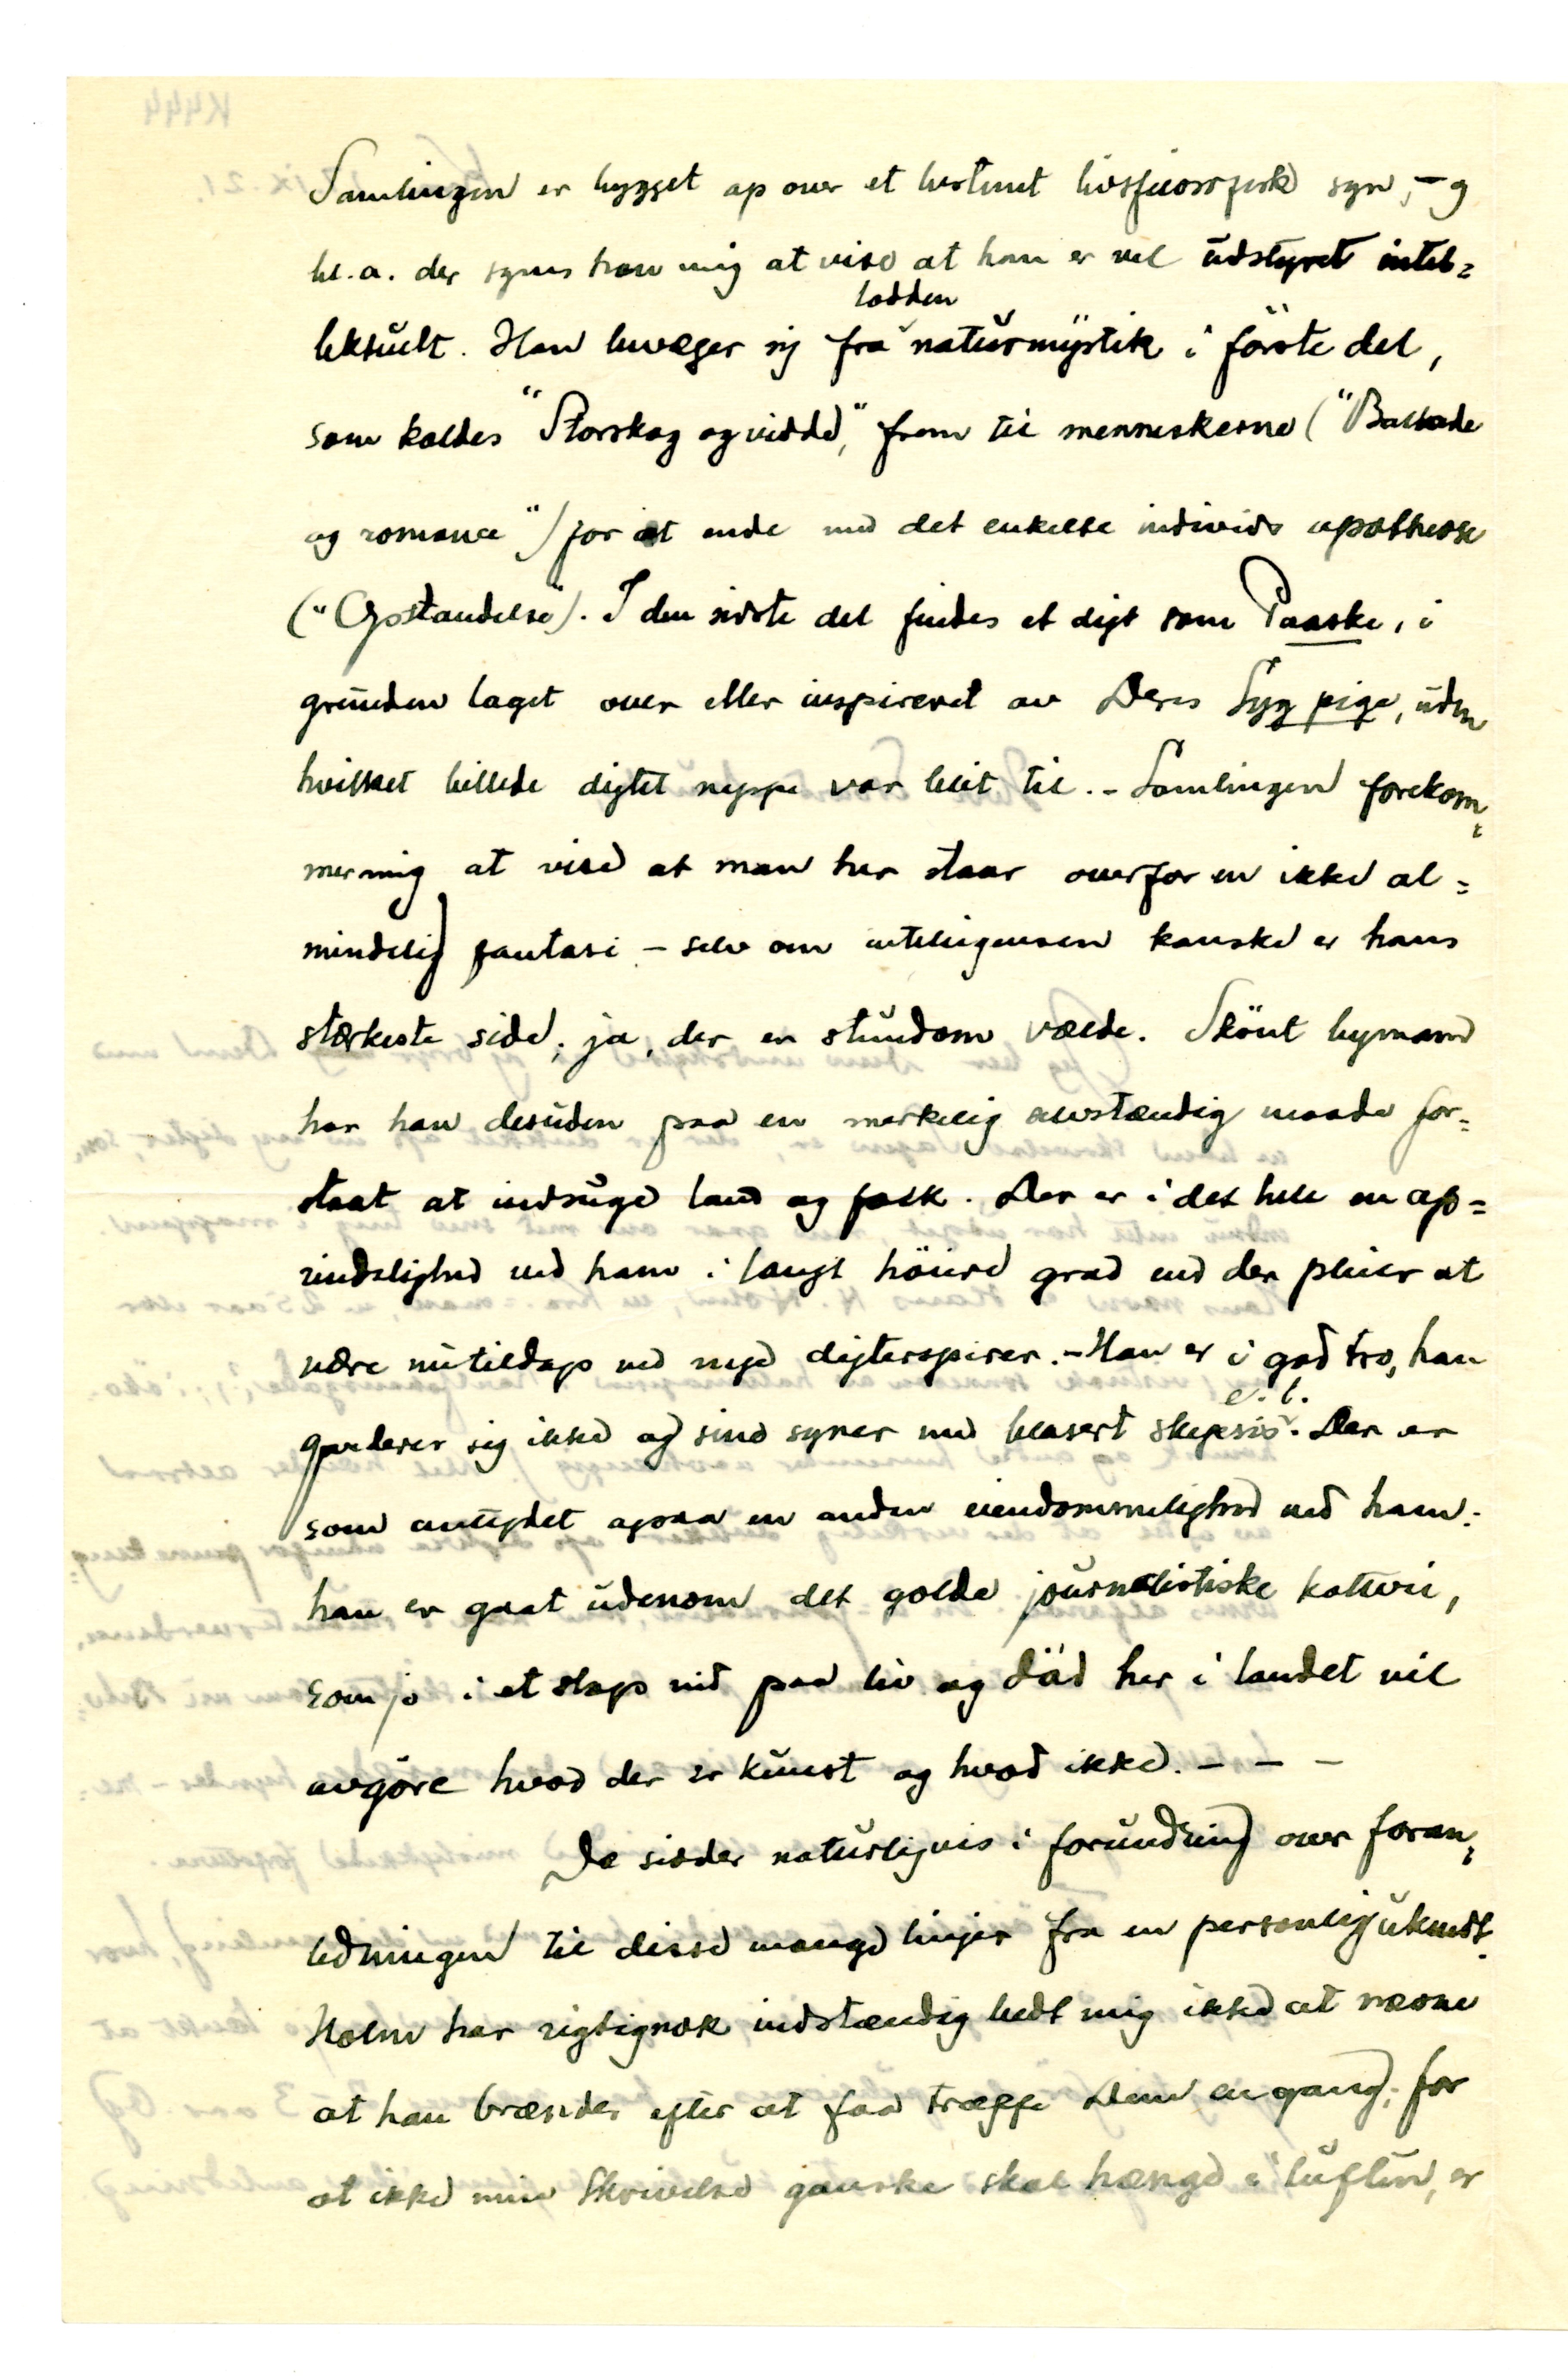 Samlingen er bygget op over et bestemt livsfilosofisk syn, – og
bl.a. der synes han mig at vise at han er vel udstyret intel=
lodden
lektuelt. Han bevæger sig fra naturmystik i förste del,
som kaldes "Storskog og vidde," frem til menneskerne ("Ballade
og romance") for at ende med det enkelte individs apotheose
("Opstandelse"). I den sidste del findes et digt som Paaske, i
grunden laget over eller inspireret av Deres Syg pige, uden
hvilket billede digtet neppe var blit til. – Samlingen forekom=
mer mig at vise at man her staar overfor en ikke al=
mindelig fantasi – selv om intelligensen kanske er hans
stærkeste side; ja, der er stundom vælde. Skönt bymand
har han desuden paa en merkelig selvstændig maade for=
staat at indsuge land og folk. Der er i det hele en op=
rindelighed ved ham i langt höiere grad end der pleier at
være nutildags ved nye digterspirer. – Han er i god tro, han
e. l.
garderer sig ikke og sine syner med blasert skepsis. Der er
som antydet ogsaa en anden eiendommelighed ved ham:
han er gaat udenom det golde journalistiske kotteri,
som jo i et slags nid paa liv og död her i landet vil
avgöre hvad der er kunst og hvad ikke. – – –
De sidder naturligvis i forundring over foran=
ledningen til disse mange linjer fra en personlig ukendt.
Holm har rigtignok indstændig bedt mig ikke at nævne
at han brænder efter at faa træffe Dem engang; for
at ikke min Skrivelse ganske skal hænge i luften, er